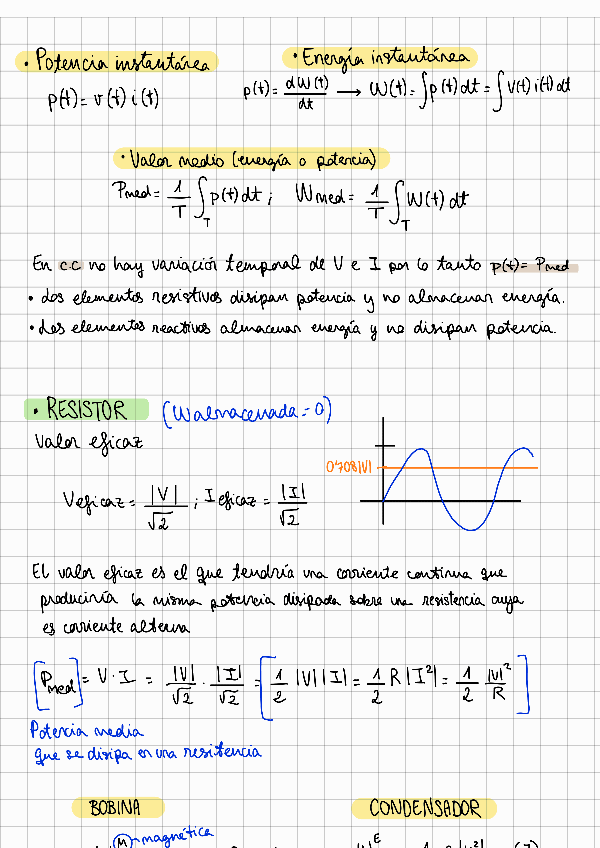 · Potencia instantánea
p(t) = v(t) i(t)
· Energía instantánea
p(t) = dW(t)/dt → W(t) = ∫p(t) dt = ∫V(t) i(t) dt
· Valor medio (energía o potencia)
Pmed = 1/T ∫_T p(t) dt ; Wmed = 1/T ∫_T W(t) dt
En c.c no hay variación temporal de V e I por lo tanto p(t) = Pmed
· Los elementos resistivos disipan potencia y no almacenan energía.
· Los elementos reactivos almacenan energía y no disipan potencia.
· RESISTOR (Walmacenada = 0)
Valor eficaz
0'708|V|
Veficaz = |V|/√2 ; Ieficaz = |I|/√2
El valor eficaz es el que tendría una corriente continua que
produciría la misma potencia disipada sobre una resistencia cuya
es corriente alterna
[Pmed] = V · I = |V|/√2 · |I|/√2 = [1/2 |V| |I| = 1/2 R |I²| = 1/2 |V|²/R]
Potencia media
que se disipa en una resitencia
BOBINA
CONDENSADOR
(M) → magnética